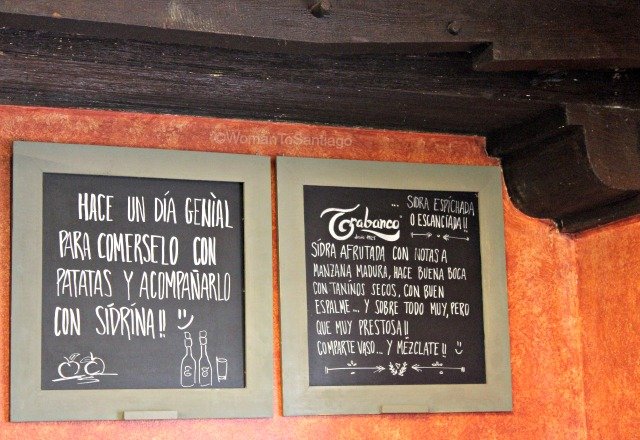 ©WomanToSantiago
HACE UN DÍA GENIAL
PARA COMERSELO CON
PATATAS Y ACOMPAÑARLO
CON SIDRINA!!
Trabanco
... SIDRA ESPICHADA
O ESCANCIADA!!
SIDRA AFRUTADA CON NOTAS A
MANZANA MADURA, HACE BUENA BOCA
CON TANINOS SECOS, CON BUEN
ESPALME... Y SOBRE TODO MUY, PERO
QUE MUY PRESTOSA!!
COMPARTE VASO... Y MÉZCLATE!!